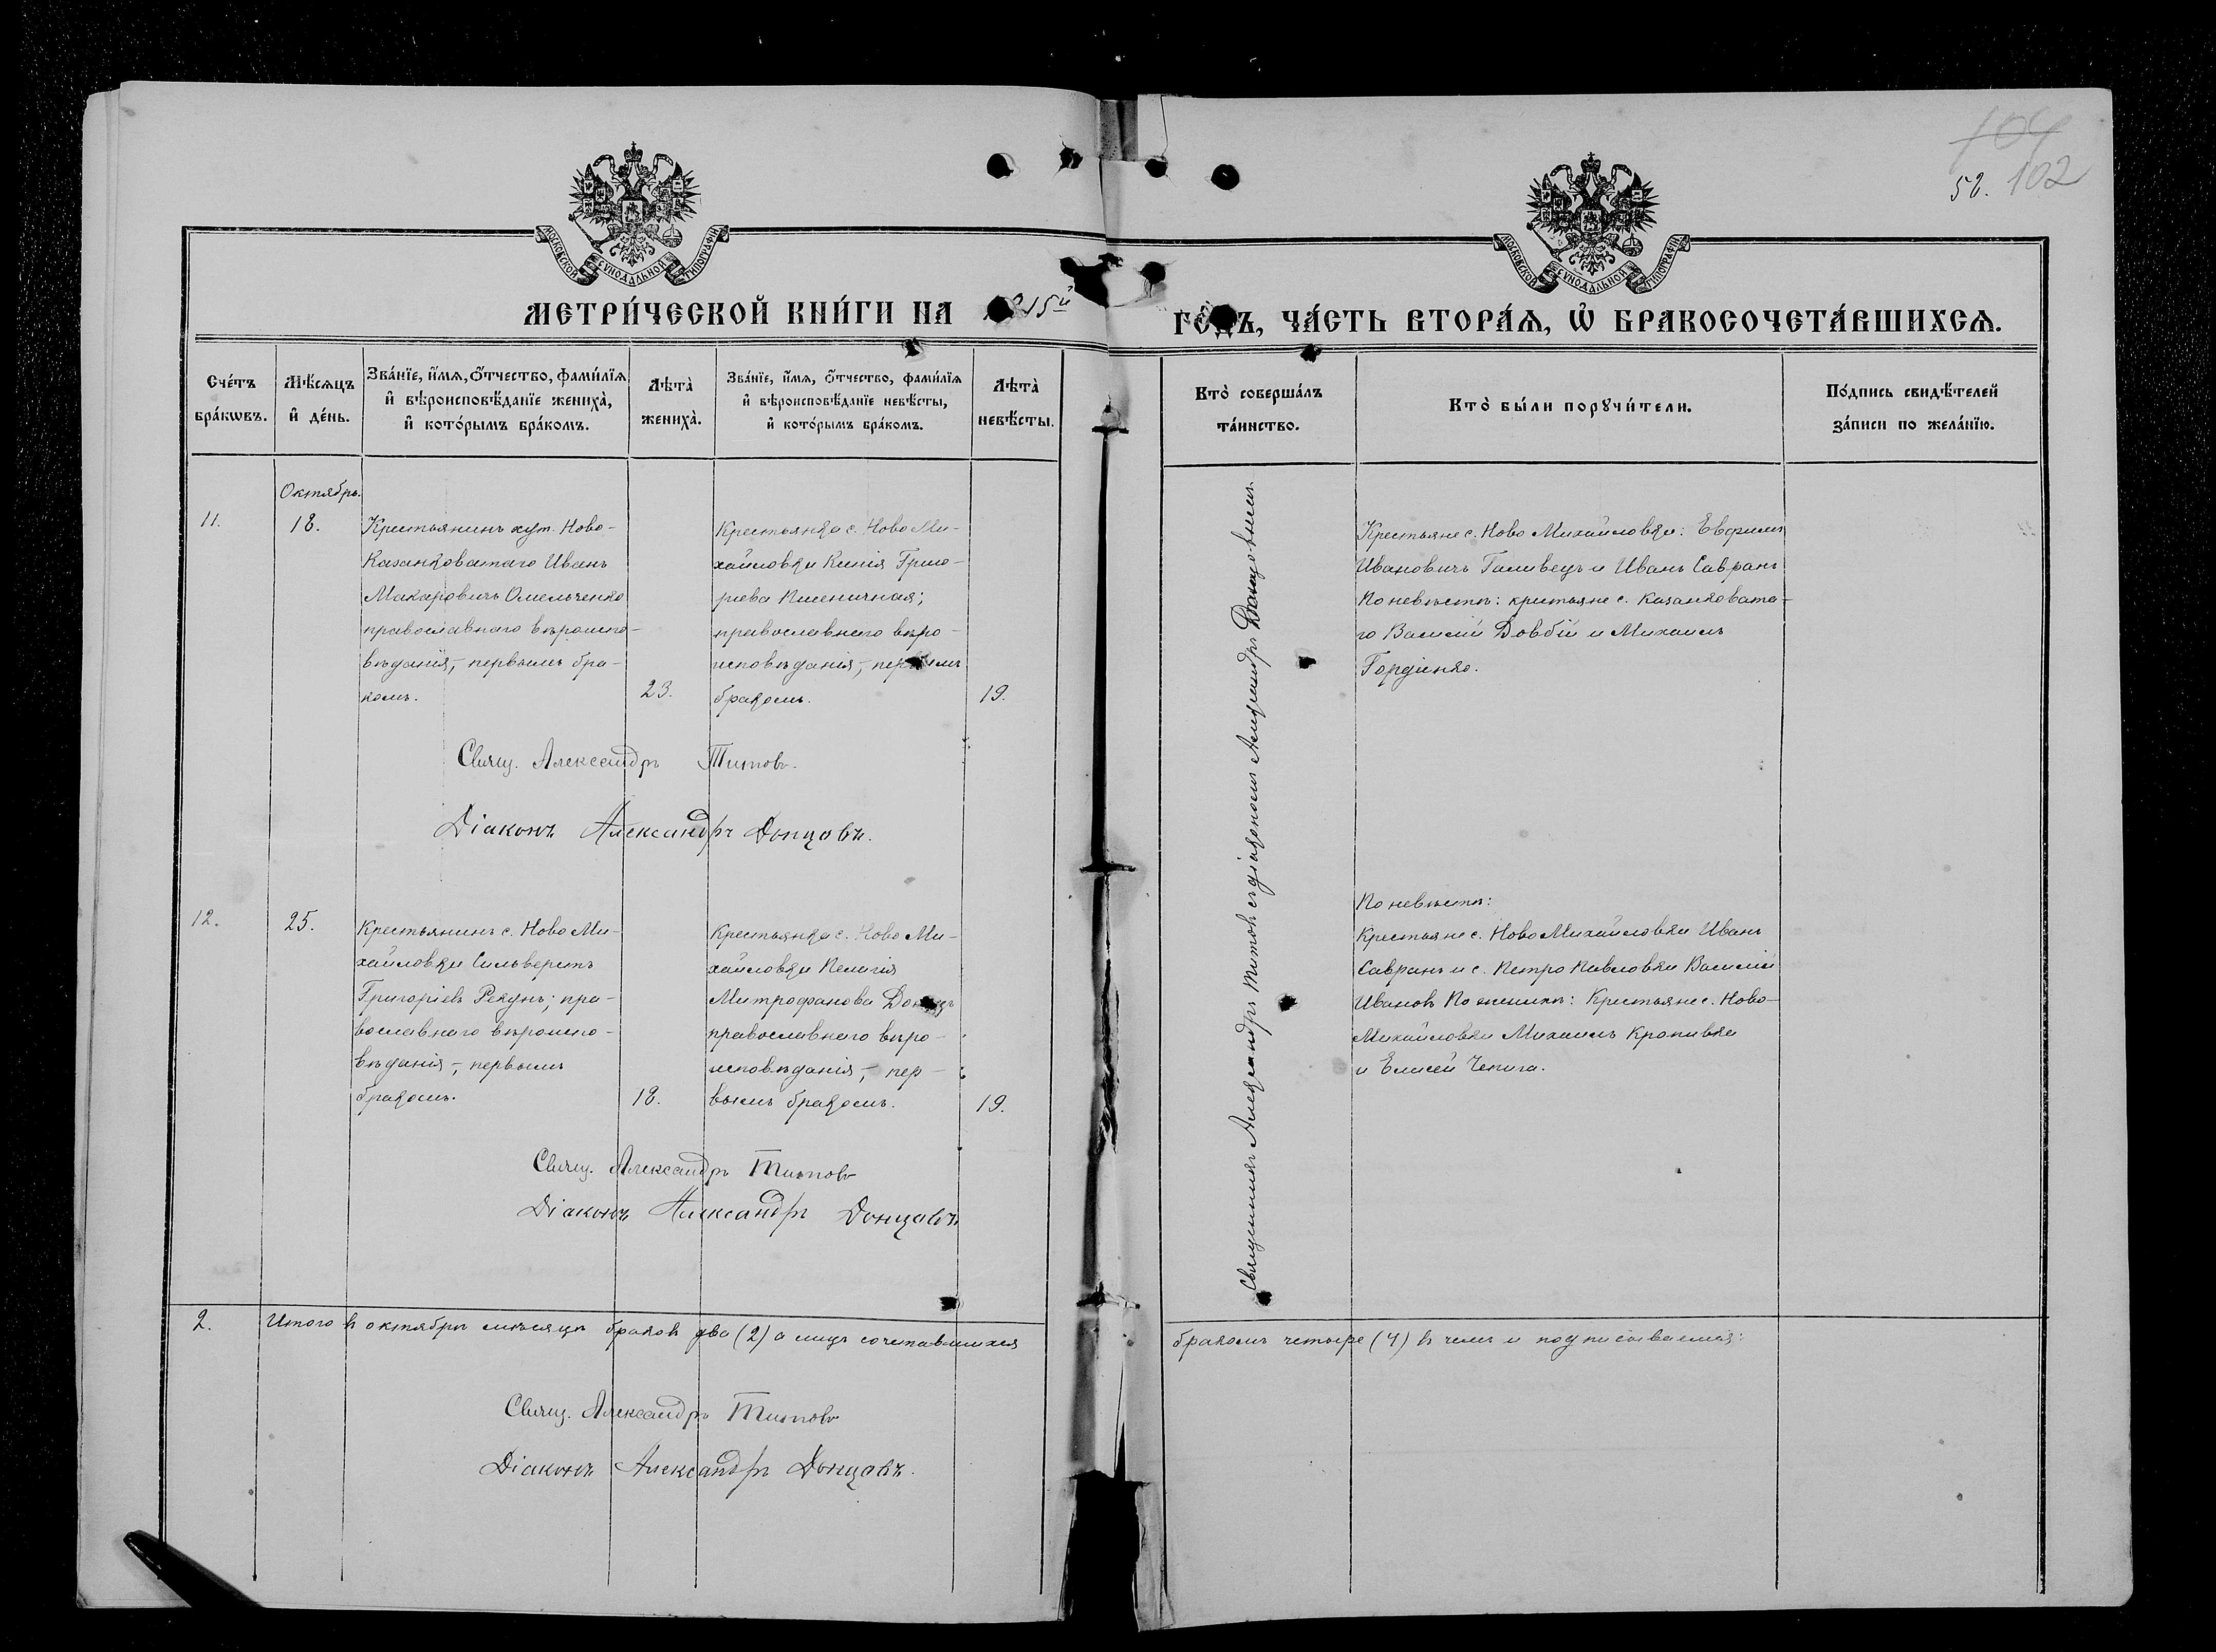 104
52. 102
МОСКОВСКОЙ СУНОДАЛЬНОЙ ТИПОГРАФІИ
МОСКОВСКОЙ СУНОДАЛЬНОЙ ТИПОГРАФІИ
МЕТРИ́ЧЕСКОЙ КНИ́ГИ НА 15й ГОДЪ, ЧА́СТЬ ВТОРА́Ѧ, Ѽ БРАКОСОЧЕТА́ВШИХСѦ.
Сче́тъ бра́кѡвъ.
Мѣ́сѧцъ и҆ де́нь.
Зва́нїе, и҆́мѧ, ѻ҆́тчество, фами́лїѧ и҆ вѣроисповѣ́данїе жениха̀, и҆ кото́рымъ бра́комъ.
Лѣта̀ жениха̀.
Зва́нїе, и҆́мѧ, ѻ҆́тчество, фами́лїѧ и҆ вѣроисповѣ́данїе невѣ́сты, и҆ кото́рымъ бра́комъ.
Лѣта̀ невѣ́сты.
Кто̀ соверша́лъ та́инство.
Кто̀ бы́ли порꙋчи́тели.
По́дпись свидѣ́телей за́писи по жела́нїю.
Октябрь.
11.
18.
Крестьянинъ хут. Ново-
Казанковатаго Иванъ
Макаровичъ Омельченко
православнаго вѣроиспо-
вѣданія,- первымъ бра-
комъ.
23.
Крестьянка с. Ново Ми-
хайловки Килія Григо-
ріева Пшеничная;
православнаго вѣро-
исповѣданія,- первымъ
бракомъ.
19.
Священникъ Александръ Титовъ съ діакономъ Александромъ Донцовымъ.
Крестьяне с. Ново Михайловки: Евфимъ
Ивановичъ Галивецъ и Иванъ Савранъ
По невѣсте: крестьяне с. Казанковата-
го Василій Довбій и Михаилъ
Гордіенко.
Свящ. Александръ Титовъ.
Діаконъ Александръ Донцовъ.
12.
25.
Крестьянинъ с. Ново Ми-
хайловки Сильверстъ
Григоріевъ Рекунъ; пра-
вославнаго вѣроиспо-
вѣданія,- первымъ
бракомъ.
18.
Крестьянка с. Ново Ми-
хайловки Пелагія
Митрофанова Донецъ
православнаго вѣро-
исповѣданія,- пер-
вымъ бракомъ.
19.
По невѣсте:
Крестьяне с. Ново Михайловки Иванъ
Савранъ и с. Петро Павловки Василій
Ивановъ По женихѣ: Крестьяне с. Ново-
Михайловки Михаилъ Кропивка
и Елисей Чепига.
Свящ. Александръ Титовъ
Діаконъ Александръ Донцовъ
2. Итого въ октябрѣ мѣсяцѣ браковъ два (2) а лицъ сочетавшихся бракомъ четыре (4) въ чемъ и подписываемся:
Свящ. Александръ Титовъ
Діаконъ Александръ Донцовъ.